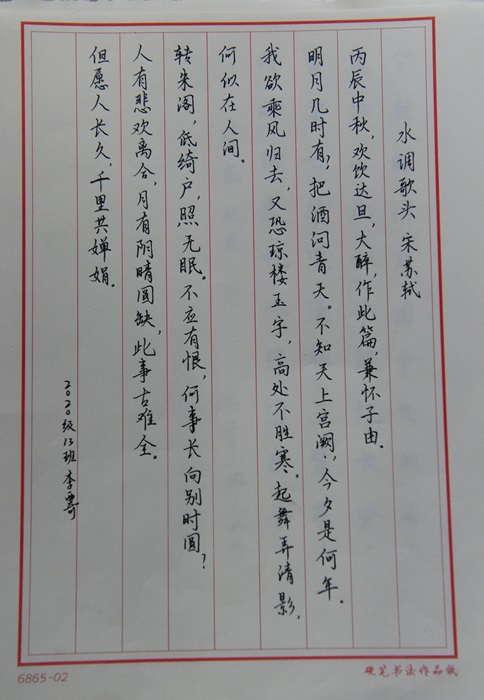 水调歌头 宋苏轼
丙辰中秋,欢饮达旦,大醉,作此篇,兼怀子由.
明月几时有,把酒问青天。不知天上宫阙,今夕是何年.
我欲乘风归去,又恐琼楼玉宇,高处不胜寒.起舞弄清影,
何似在人间.
转朱阁,低绮户,照无眠。不应有恨,何事长向别时圆?
人有悲欢离合,月有阴晴圆缺,此事古难全.
但愿人长久,千里共婵娟.
2020级13班 李
6865-02
硬笔书法作品纸